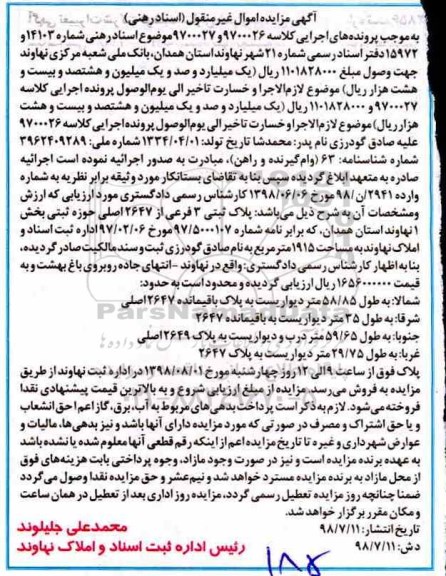 آگهی مزایده اموال غیر منقول (اسناد رهنی)
به موجب پرونده‌های اجرایی کلاسه ۹۷۰۰۰۲۶ و ۹۷۰۰۰۲۷ موضوع اسناد رهنی شماره ۱۴۱۰۳ و
۱۵۹۷۲ دفتر اسناد رسمی شماره ۲۱ شهر نهاوند استان همدان، بانک ملی شعبه مرکزی نهاوند
جهت وصول مبلغ ۱۱۰۱۸۲۸۰۰۰ ریال (یک میلیارد و صد و یک میلیون و هشتصد و بیست و
هشت هزار ریال) موضوع لازم‌الاجرا و خسارت تاخیر الی یوم‌الوصول پرونده اجرایی کلاسه
۹۷۰۰۰۲۷ و ۱۱۰۱۸۲۸۰۰۰ ریال (یک میلیارد و صد و یک میلیون و هشتصد و بیست و هشت
هزار ریال) موضوع لازم‌الاجرا و خسارت تاخیر الی یوم‌الوصول پرونده اجرایی کلاسه ۹۷۰۰۰۲۶
علیه صادق گودرزی نام پدر: محمدشا تاریخ تولد: ۱۳۳۴/۰۴/۰۱ شماره ملی: ۳۹۶۲۴۰۹۲۸۹
شماره شناسنامه: ۶۳ (وام‌گیرنده و راهن)، مبادرت به صدور اجرائیه نموده است اجرائیه
صادره به متعهد ابلاغ گردیده سپس بنا به تقاضای بستانکار مورد وثیقه برابر نظریه به شماره
وارده ۲۹۴۱/ن/۹۸ مورخ ۱۳۹۸/۰۶/۰۶ کارشناس رسمی دادگستری مورد ارزیابی که ارزش
و مشخصات آن به شرح ذیل می‌باشد: پلاک ثبتی ۳ فرعی از ۲۶۴۷ اصلی حوزه ثبتی بخش
۱ نهاوند استان همدان، که برابر نامه شماره ۹۷/۵۰۰۰۱۰۷ مورخ ۹۷/۰۲/۰۶ اداره ثبت اسناد و
املاک نهاوند به مساحت ۱۹۱۵ متر مربع به نام صادق گودرزی ثبت و سند مالکیت صادر گردیده،
بنا به اظهار کارشناس رسمی دادگستری: واقع در نهاوند - انتهای جاده روبروی باغ بهشت و به
قیمت ۱۶۵۶۰۰۰۰۰۰ ریال ارزیابی گردیده و محدود است به حدود:
شمالا: به طول ۵۸/۸۵ متر دیواریست به پلاک باقیمانده ۲۶۴۷ اصلی
شرقا: به طول ۳۵ متر دیواریست به باقیمانده ۲۶۴۷
جنوبا: به طول ۵۹/۶۵ متر درب و دیواریست به پلاک ۲۶۴۹ اصلی
غربا: به طول ۲۹/۷۵ متر دیواریست به پلاک ۲۶۴۷
پلاک فوق از ساعت ۹ الی ۱۲ روز چهارشنبه مورخ ۱۳۹۸/۰۸/۰۱ در اداره ثبت نهاوند از طریق
مزایده به فروش می‌رسد. مزایده از مبلغ ارزیابی شروع و به بالاترین قیمت پیشنهادی نقدا
فروخته می‌شود. لازم به ذکر است پرداخت بدهی‌های مربوط به آب، برق، گاز اعم از حق انشعاب
و یا حق اشتراک و مصرف در صورتی که مورد مزایده دارای آنها باشد و نیز بدهی‌ها، مالیات و
عوارض شهرداری و غیره تا تاریخ مزایده اعم از اینکه رقم قطعی آنها معلوم شده یا نشده باشد
به عهده برنده مزایده است و نیز در صورت وجود مازاد، وجوه پرداختی بابت هزینه‌های فوق
از محل مازاد به برنده مزایده مسترد خواهد شد و نیم‌عشر و حق مزایده نقدا وصول می‌گردد
ضمنا چنانچه روز مزایده تعطیل رسمی گردد، مزایده روز اداری بعد از تعطیل در همان ساعت
و مکان مقرر برگزار خواهد شد.
تاریخ انتشار: ۹۸/۷/۱۱
محمدعلی جلیلوند
دش: ۹۸/۷/۱۱
رئیس اداره ثبت اسناد و املاک نهاوند